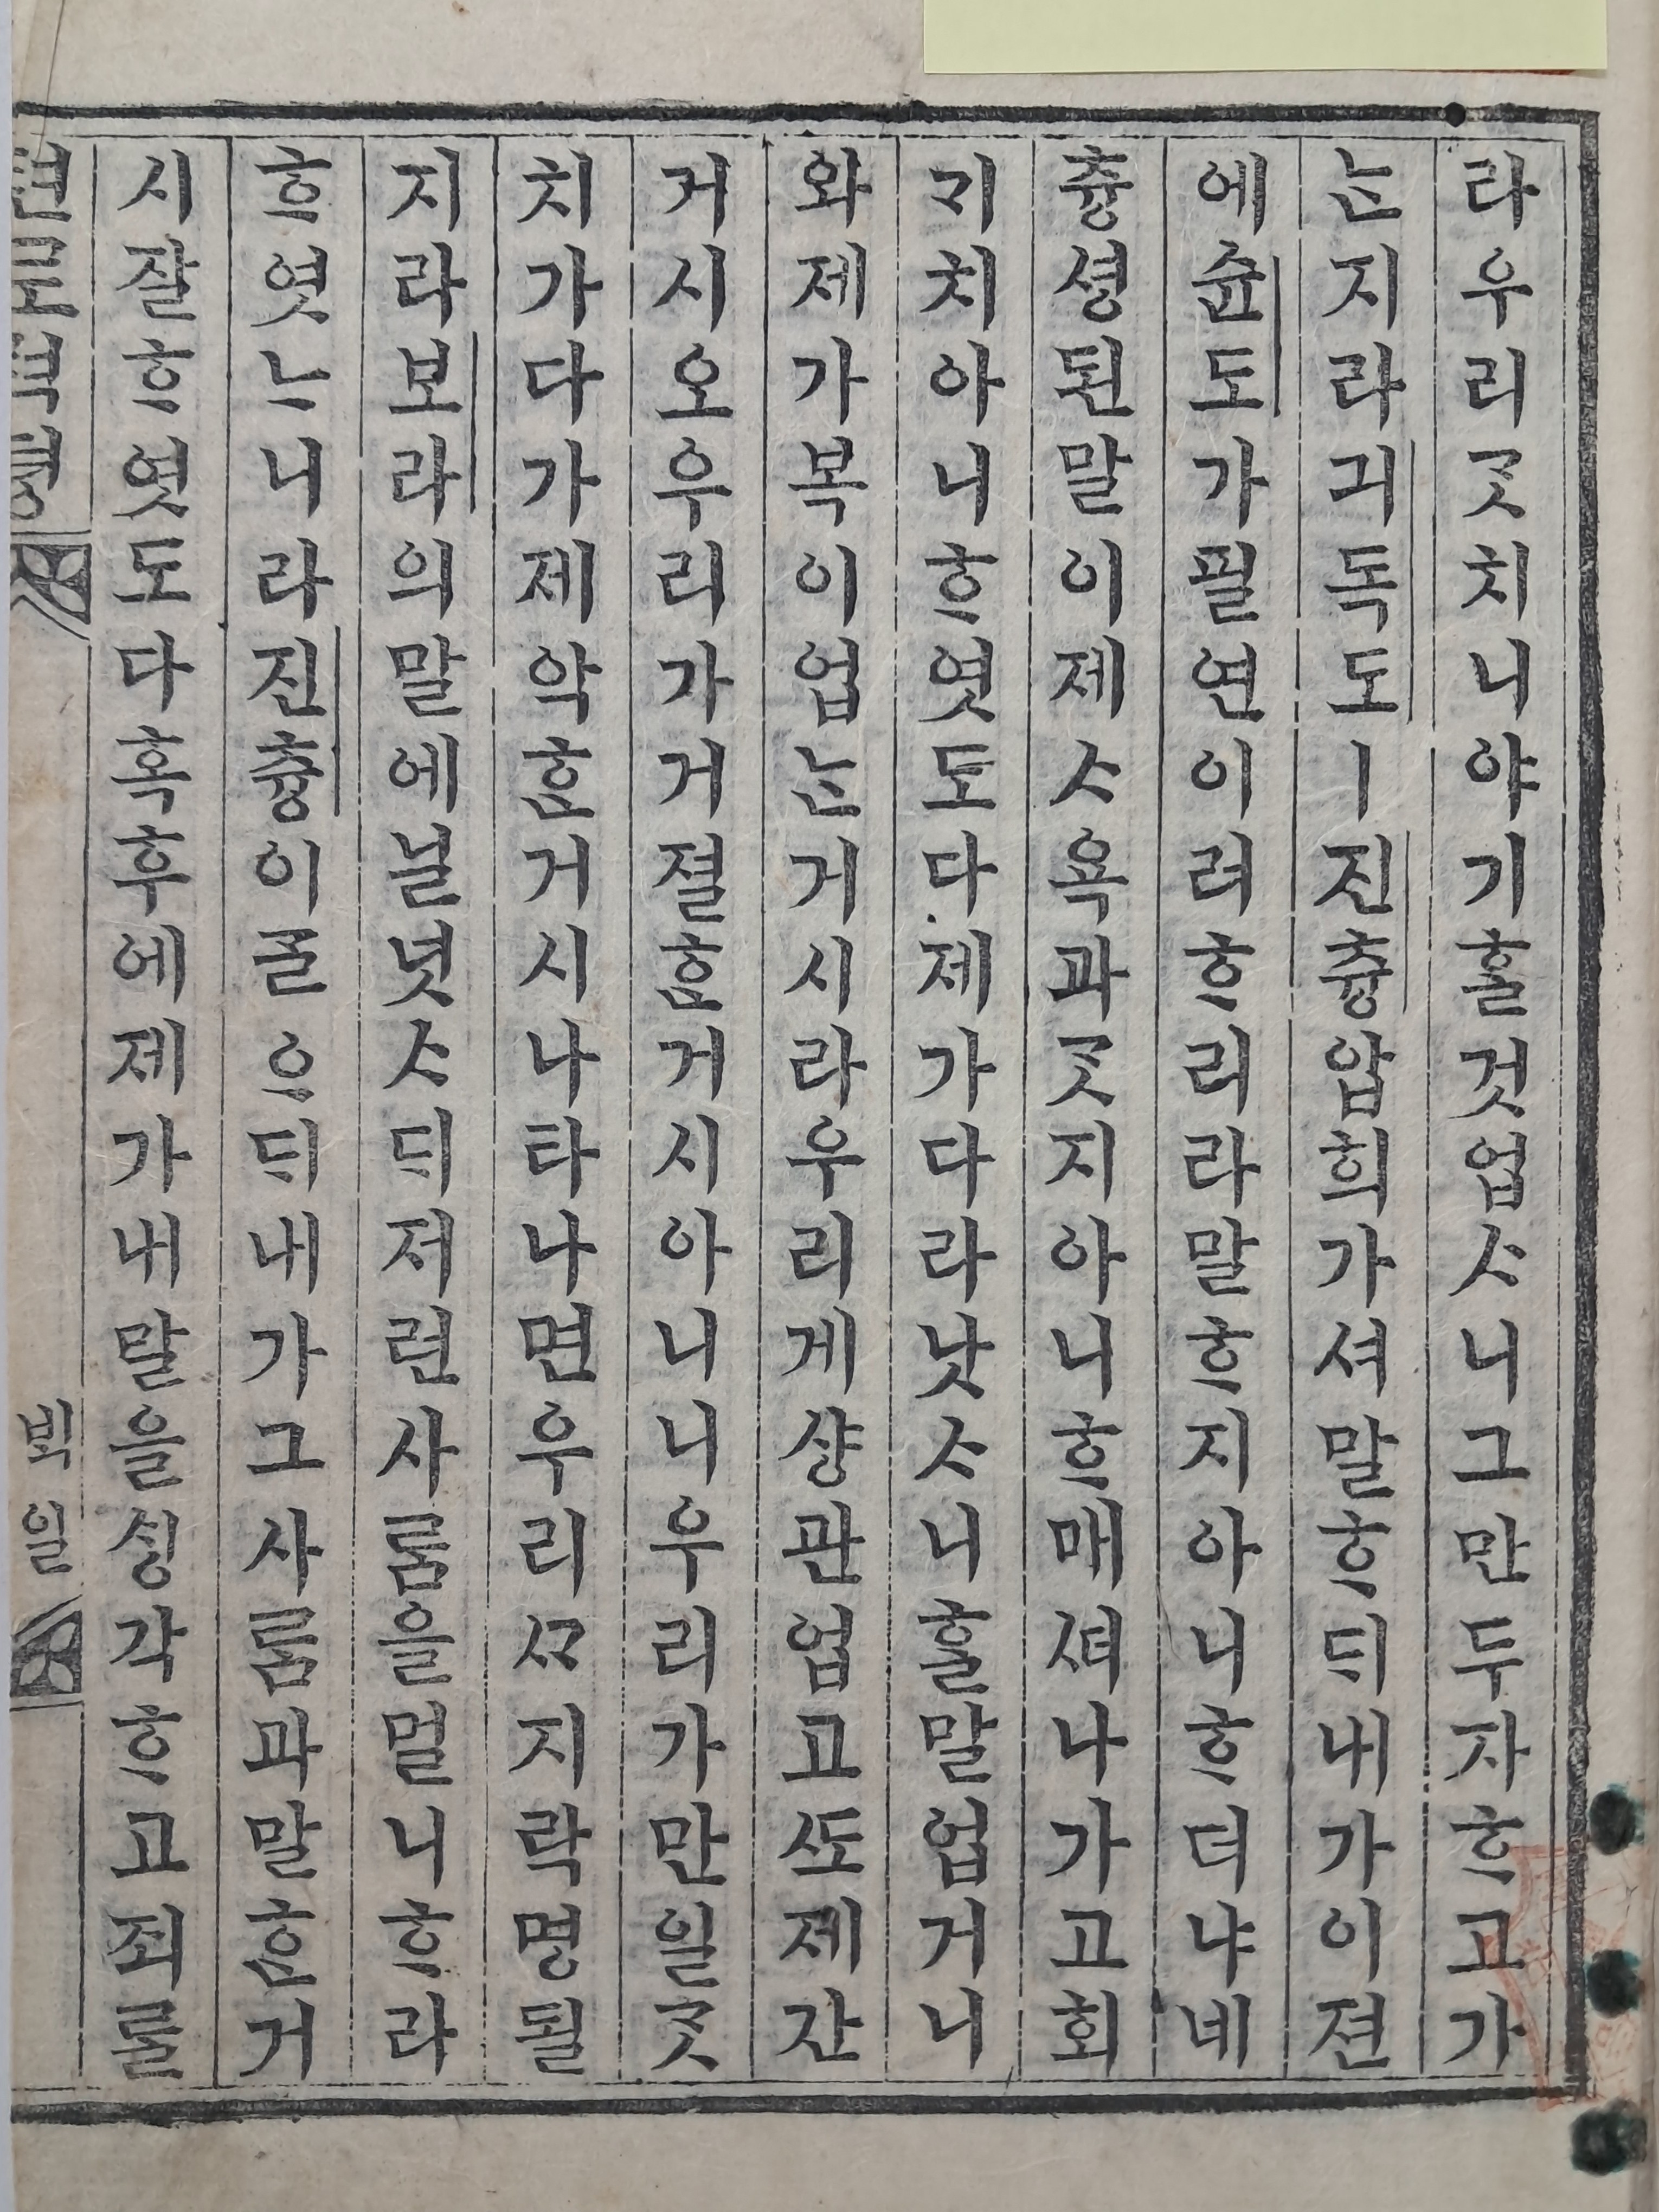 라우리ᄀᆞᆺ치니야기ᄒᆞᆯ것업ᄉᆞ니그만두자ᄒᆞ고가
ᄂᆞᆫ지라긔독도ㅣ진츙압희가셔말ᄒᆞ되내가이젼
에슌도가필연이러ᄒᆞ리라말ᄒᆞ지아니ᄒᆞ더냐네
츙셩된말이제ᄉᆞ욕과ᄀᆞᆺ지아니ᄒᆞ매셔나가고회
ᄀᆡ치아니ᄒᆞ엿도다제가다라낫ᄉᆞ니ᄒᆞᆯ말업거니
와제가복이업ᄂᆞᆫ거시라우리게샹관업고ᄯᅩ제잔
거시오우리가거졀ᄒᆞᆫ거시아니니우리가만일ᄀᆞᆺ
치가다가제악ᄒᆞᆫ거시나타나면우리ᄭᆞ지락명될
지라보라의말에닐넛ᄉᆞ되져런사ᄅᆞᆷ을멀니ᄒᆞ라
ᄒᆞ엿ᄂᆞ니라진츙이ᄀᆞᆯᄋᆞ되내가그사ᄅᆞᆷ과말ᄒᆞᆫ거
시잘ᄒᆞ엿도다혹후에제가내말을ᄉᆡᆼ각ᄒᆞ고죄를